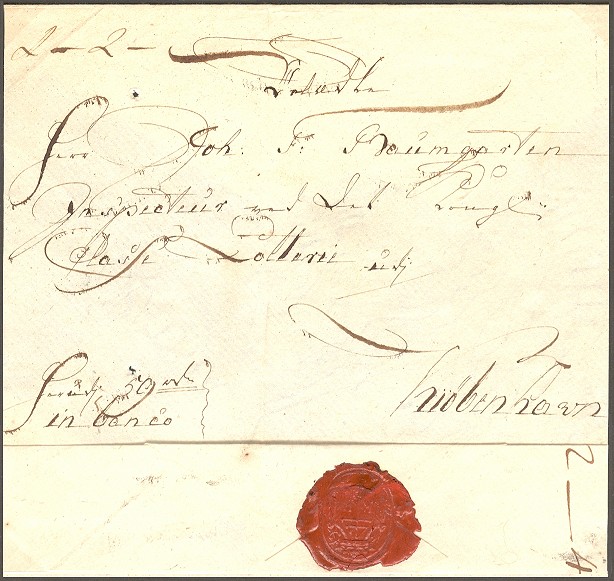 2 - 2 -
Herr Joh. F. Baumgarten
Inspecteur ved Det Kongl:
Classe Lotterie udj
Kiøbenhavn
20
in banco
2 - 4